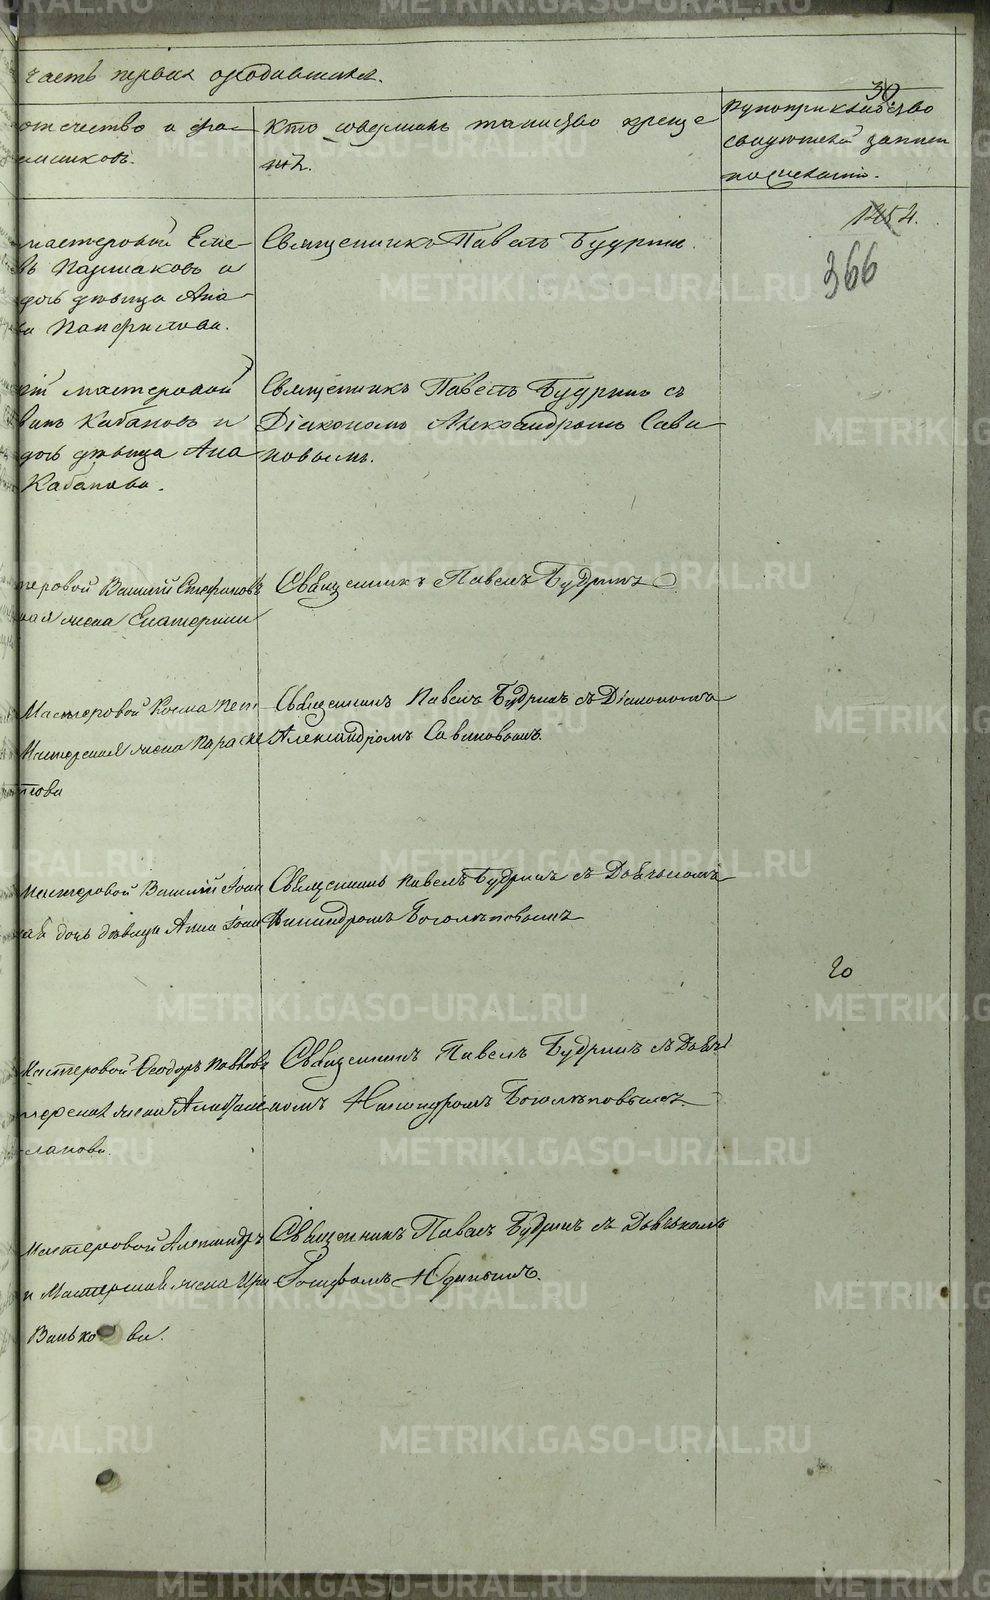 часть первая о родившихся.
30
отчество и фа-
миликовъ.
Кто совершалъ таинство креще
нія.
Рукоприкладство
свидѣтелей записи
по желанію.
1454.
366
мастеровой Еме-
въ Паршаковъ и
дочь дѣвица Анна
Панфилова.
Священникъ Павелъ Будринъ.
мастеровой
винъ Кабановъ и
дочь дѣвица Анна
Кабанова.
Священникъ Павелъ Будринъ съ
Діакономъ Александромъ Сави
новымъ.
теровой Василій Стефановъ
ная жена Екатерина
Священникъ Павелъ Будринъ
Мастеровой Косма Пет
Мастерская жена Параске
това
Священникъ Павелъ Будринъ съ Діакономъ
Александромъ Савиновымъ.
Мастеровой Василій Іоан
дочь дѣвица Анна Іоан
Священникъ Павелъ Будринъ съ Дьячкомъ
Никандромъ Боголѣповымъ
20
Мастеровой Ѳеодоръ Павловъ
жена
лапова.
Священникъ Павелъ Будринъ съ Дьяч
комъ Никандромъ Боголѣповымъ
Мастеровой Александръ
и Мастерская жена Ири
Ванькова.
Священникъ Павелъ Будринъ съ Дьячкомъ
Іосифомъ Юдинымъ.
METRIKI.GASO-URAL.RU